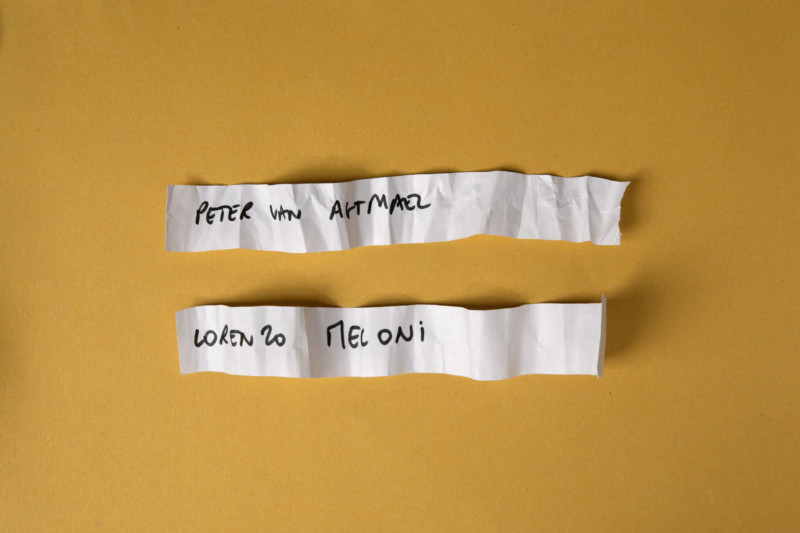 PETER VAN AHTMAEL
LORENZO MELONi